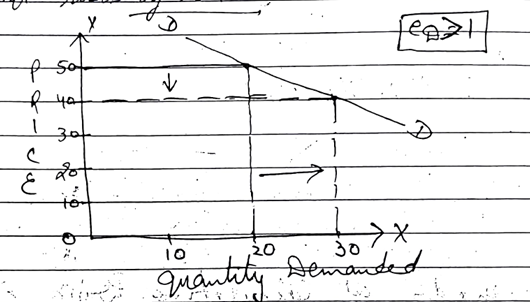 Y
D
eD>1
P 50
R 40
I 30
C 20
E 10
0 10 20 30 X
D
Quantity Demanded